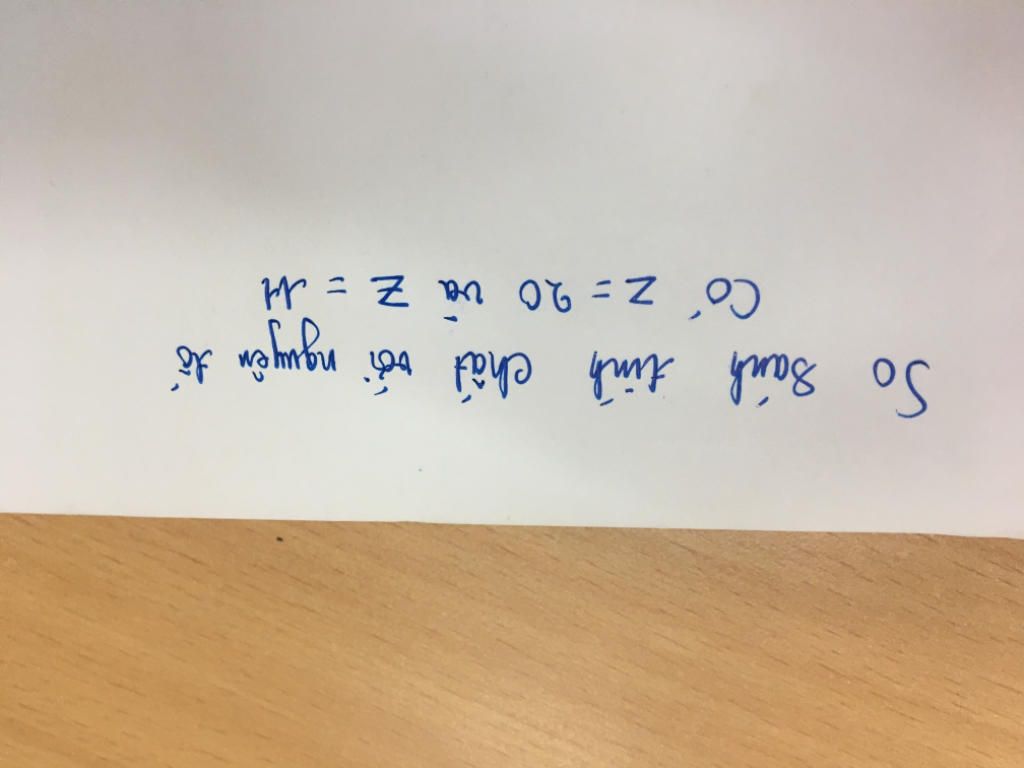 So sánh tính chất với nguyên tố
Có Z = 20 và Z = 11